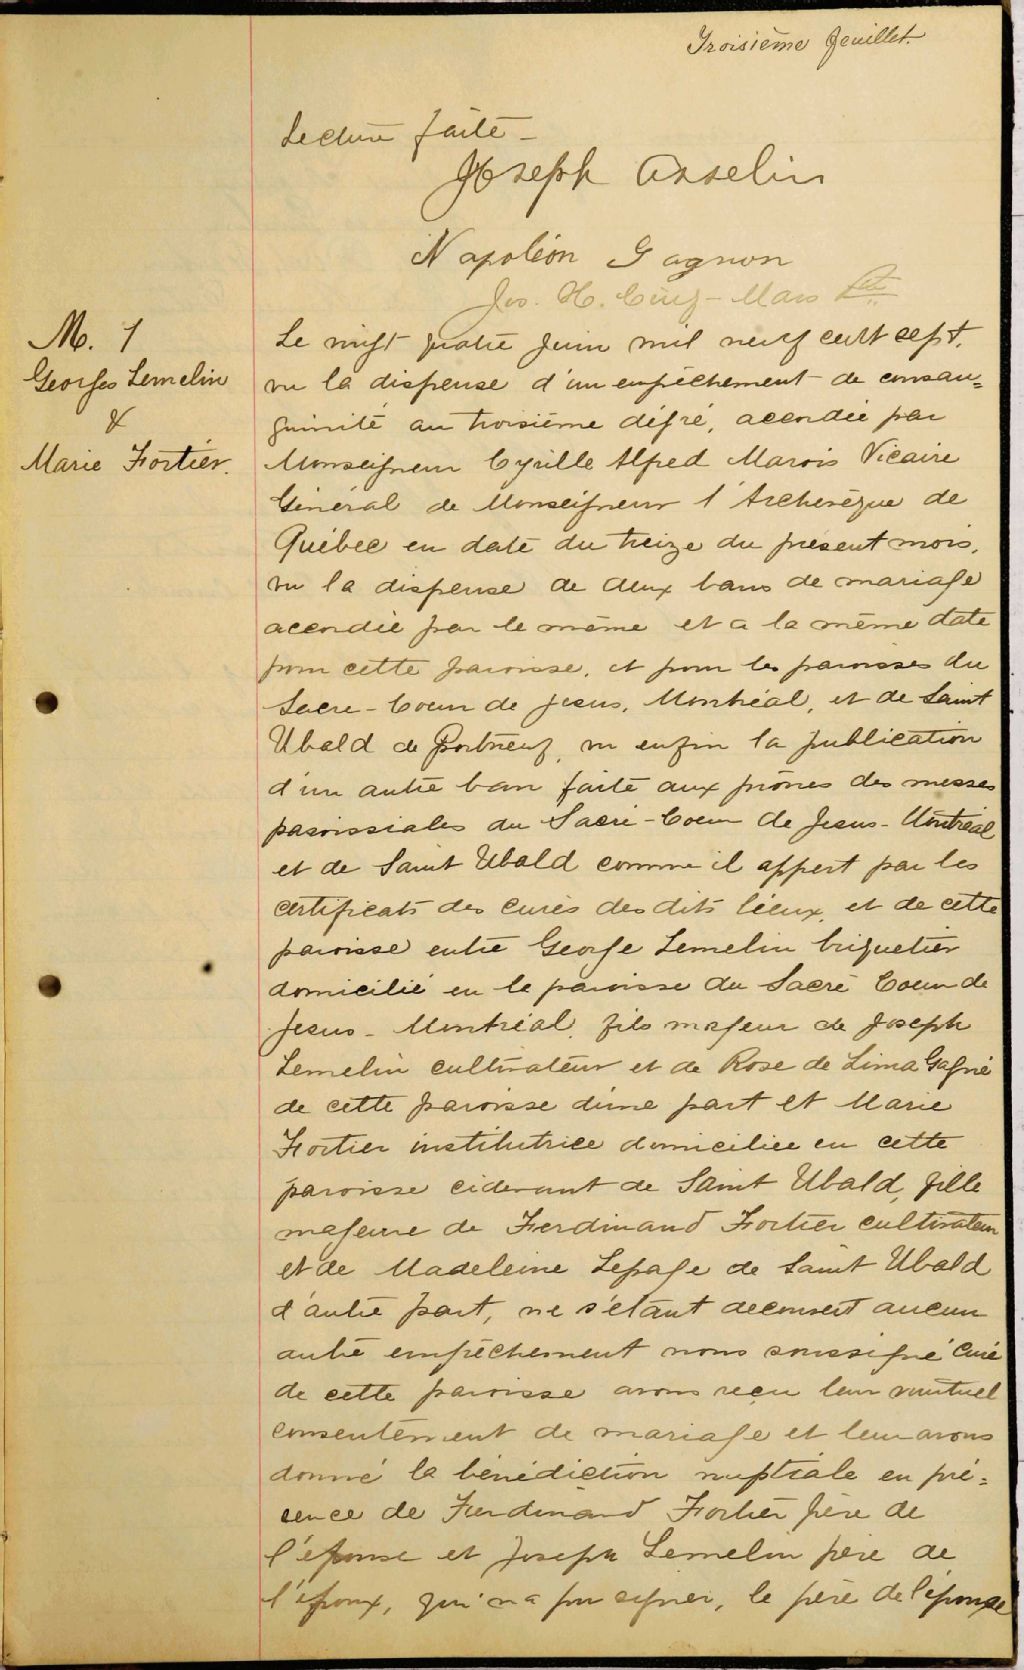 Troisième feuillet.
Lecture faite –
Joseph Asselin
Napoléon Gagnon
Jos. H. Cinq-Mars Ptre
M. 1
Georges Lemelin
&
Marie Fortier.
Le vingt quatre juin mil neuf cent sept,
vu la dispense d'un empêchement de consan=
guinité au troisième dégré, accordée par
Monseigneur Cyrille Alfred Marois Vicaire
Général de Monseigneur l'Archevêque de
Québec en date du treize du present mois,
vu la dispense de deux bans de mariage
accordée par le même et a la même date
pour cette paroisse, et pour les paroisses du
Sacre-Coeur de Jesus, Montréal, et de Saint
Ubald de Portneuf, vu enfin la publication
d'un autre ban faite aux prônes des messes
paroissiales du Sacré-Coeur de Jesus-Montréal
et de Saint Ubald comme il appert par les
certificats des curés des dits lieux, et de cette
paroisse entre George Lemelin briquetier
domicilié en la paroisse du Sacré Coeur de
Jesus-Montréal, fils majeur de Joseph
Lemelin cultivateur et de Rose de Lima Gagné
de cette paroisse d'une part et Marie
Fortier institutrice domiciliée en cette
paroisse cidevant de Saint Ubald, fille
majeure de Ferdinand Fortier cultivateur
et de Madeleine Lepage de Saint Ubald
d'autre part, ne s'étant decouvert aucun
autre empêchement nous soussigné curé
de cette paroisse avons reçu leur mutuel
consentement de mariage et leur avons
donné la bénédiction nuptiale en pré=
sence de Ferdinand Fortier père de
l'épouse et Joseph Lemelin père de
l'époux, qui n'a pu signer, le père de l'épouse